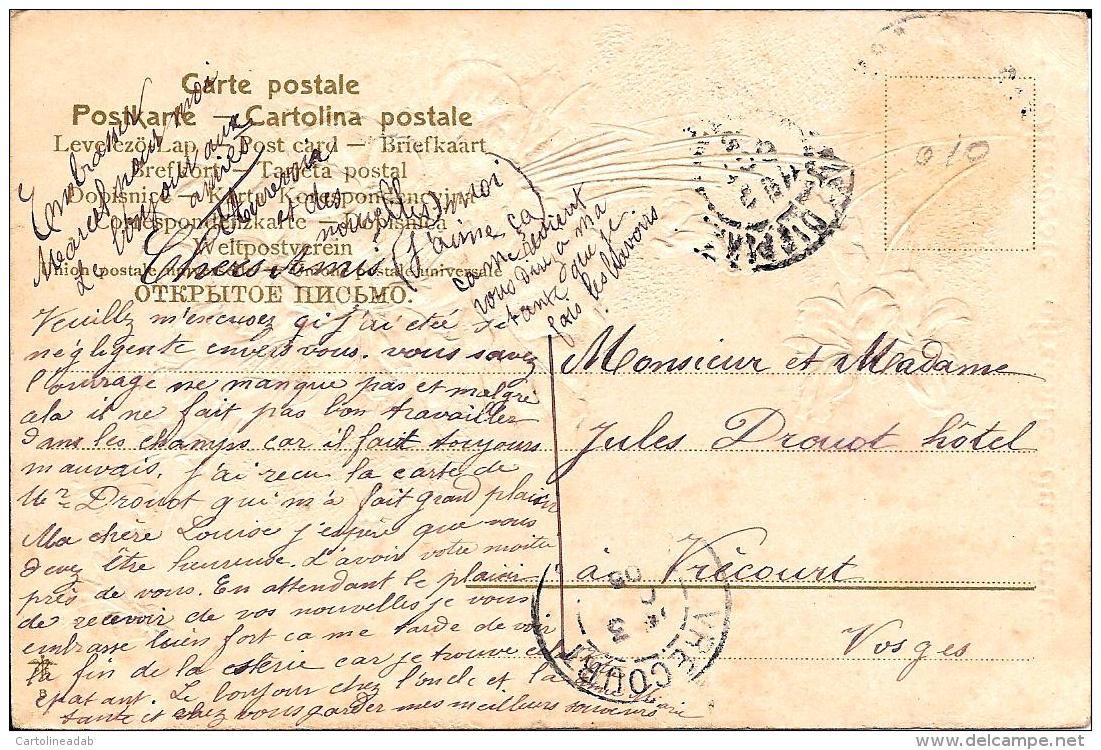 Carte postale
Postkarte — Cartolina postale
Levelező-Lap — Post card — Briefkaart
Brefkort — Tarjeta postal
Dopisnice — Karta Korespondencyjna
Correspondenzkarte — Dopisnica
Weltpostverein
Union postale universelle — postale universale
ОТКРЫТОЕ ПИСЬМО.
Embrasser
Marcel pour moi
Le bonjour aux
amies
et des
nouvelles
moi
(J'aime ça
ça me devient
vous dire a ma
tante que je
fais les devoirs
!
Chers Amis
Veuillez m'excusez qi j'ai été si
négligente envers vous. vous savez
l'ouvrage ne manque pas et malgré
cela il ne fait pas bon travailler
dans les champs car il fait toujours
mauvais. J'ai reçu la carte de
Mr Drouot qui m'a fait grand plaisir
Ma chère Louise j'espère que vous
devez être heureuse. D'avoir votre moitié
près de vous. En attendant le plaisir
de recevoir de vos nouvelles je vous
embrasse bien fort ca me tarde de voir
la fin de la série car je trouve
épatant. Le bonjour chez l'oncle et la
tante et chez vous garder mes meilleurs souvenirs
Marie
Monsieur et Madame
Jules Drouot hôtel
à Vrécourt
Vosges
VRECOURT
3
05
010
Cartolineadab
delcampe.net